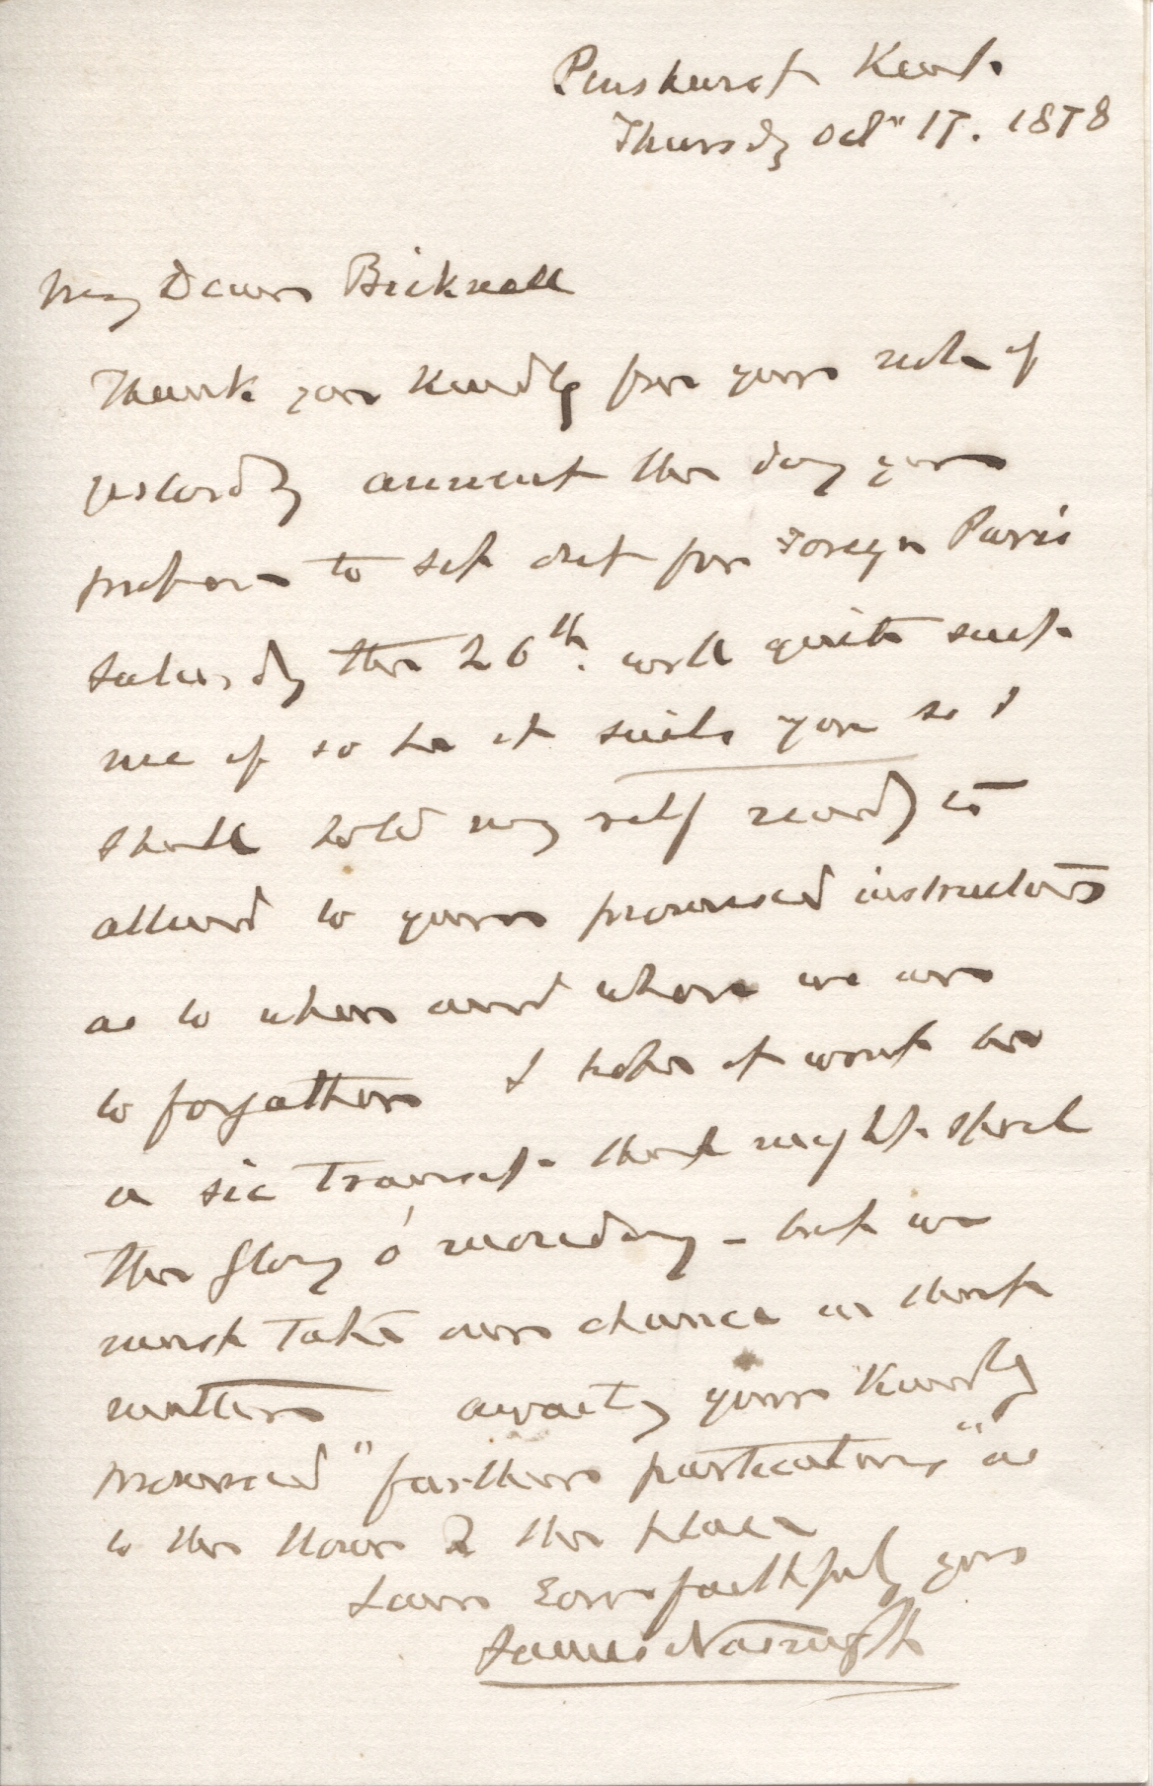 Penshurst Kent.
Thursdy Octr 17. 1878
My Dear Bicknell
Thank you kindly for your note of
yesterdy anent the day you
prefer to set out for Foreign Paris
Saturdy the 26th. will quite suit
me if so be it suits you so I
shall hold my self ready to
attend to your promised instructions
as to when and where we are
to forgather I hope it wont be
a sic transit that might spoil
the Glory o' monday - but we
must take our chance in that
matter awaitg your kindly
promised "farther particulars" as
to the hour & the place
I am Ever faithfuly yours
James Nasmyth